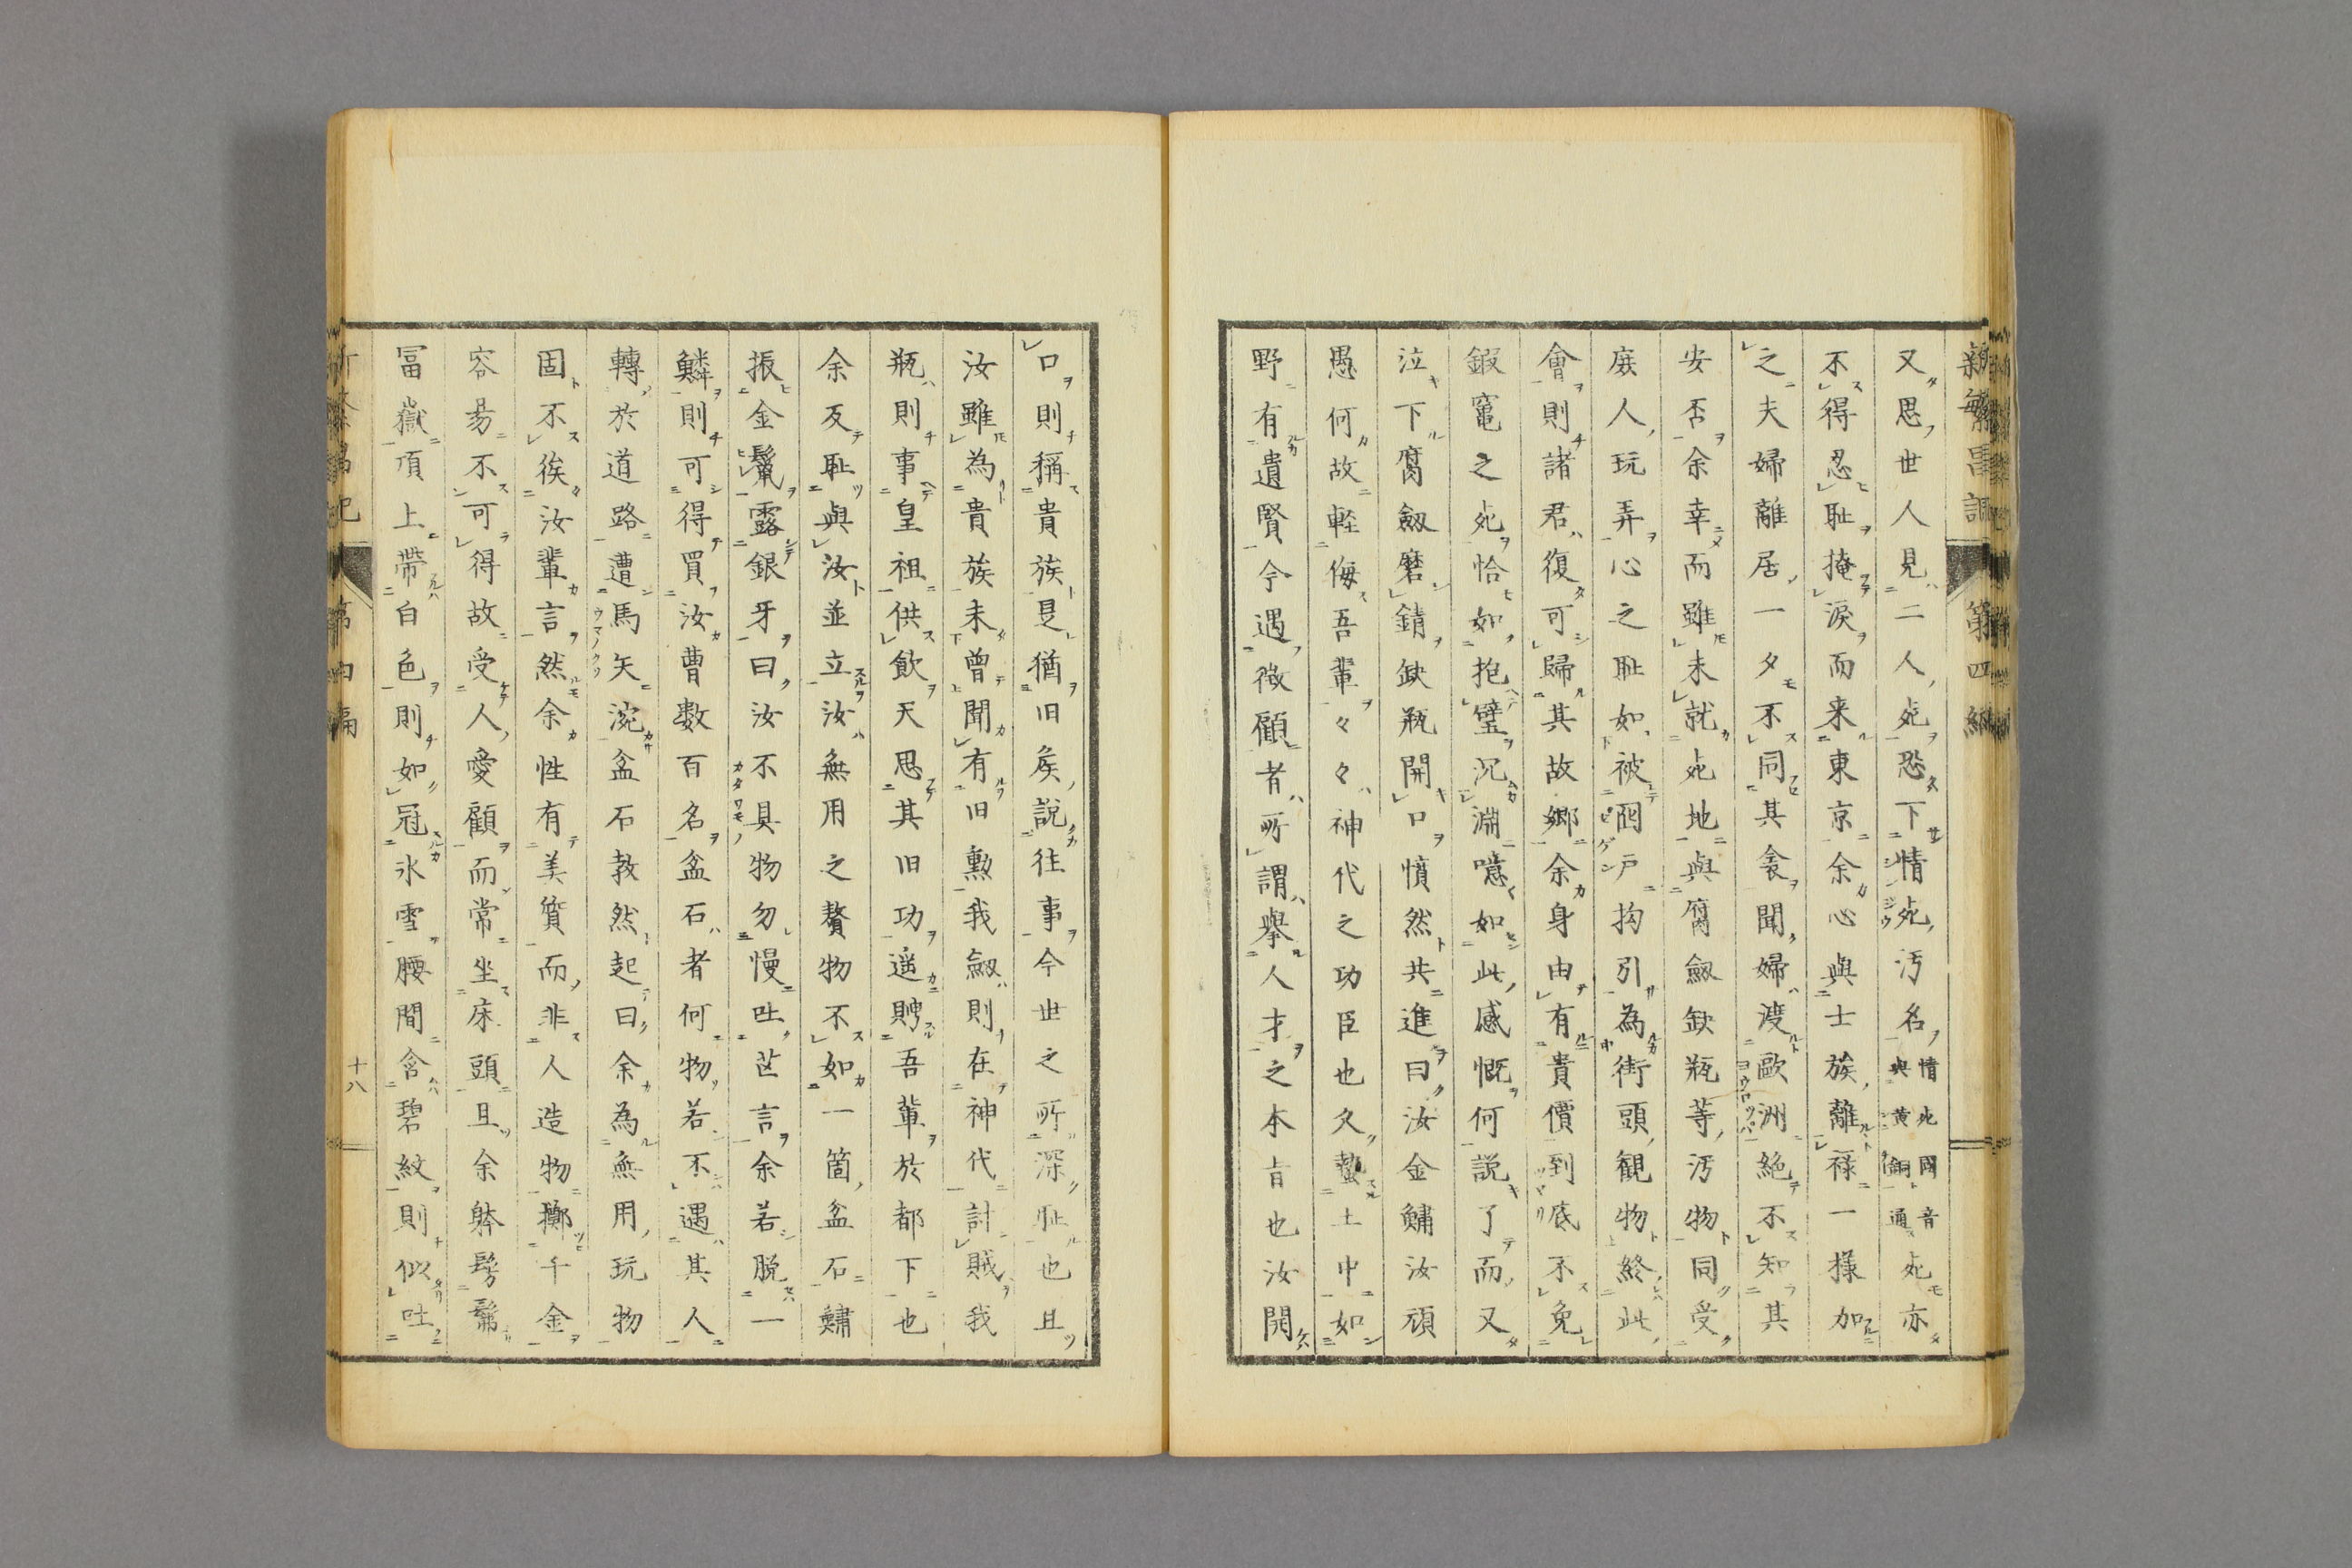 又思世人見二人死恐下情死汚名情死國音與黄銅通死亦
不得忍耻掩涙而来東京余心與士族離祿一様加
之夫婦離居一夕不同其衾聞婦渡歐洲絶不知其
安否余幸而雖未就死地與腐劔缺瓶等汚物同受
庭人玩弄心之耻如被圀戸拘引為街頭観物終此
會則諸君復可歸其故郷余身由有貴價到底不免
鍜竃之死恰如抱璧沉淵噫如此感慨何説了而又
泣下腐劔磨錆缺瓶開口憤然共進曰汝金鱐汝頑
愚何故軽侮吾輩々々神代之功臣也久蟄土中如
野有遺賢今遇徴顧者所謂擧人才之本旨也汝開
口則稱貴族是猶旧矦説往事今世之所深耻也且
汝雖為貴族未曽聞有旧勲我劔則在神代討賊我
瓶則事皇祖供飲天思其旧功遥聘吾輩於都下也
余反耻與汝並立汝無用之贅物不如一箇盆石鱐
振金鬣露銀牙曰汝不具物勿慢吐茫言余若脱一
鱗則可得買汝曹数百名盆石者何物若不遇其人
轉於道路遭馬矢涴盆石敎然起曰余為無用玩物
固不俟汝輩言然余性有美質而非人造物擲千金
容易不可得故受人愛顧而常坐床頭且余躰髣髴
冨嶽頂上帯白色則如冠氷雪腰間含碧紋則似吐
十八